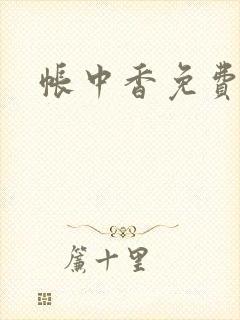 帐中香免费
簾十里